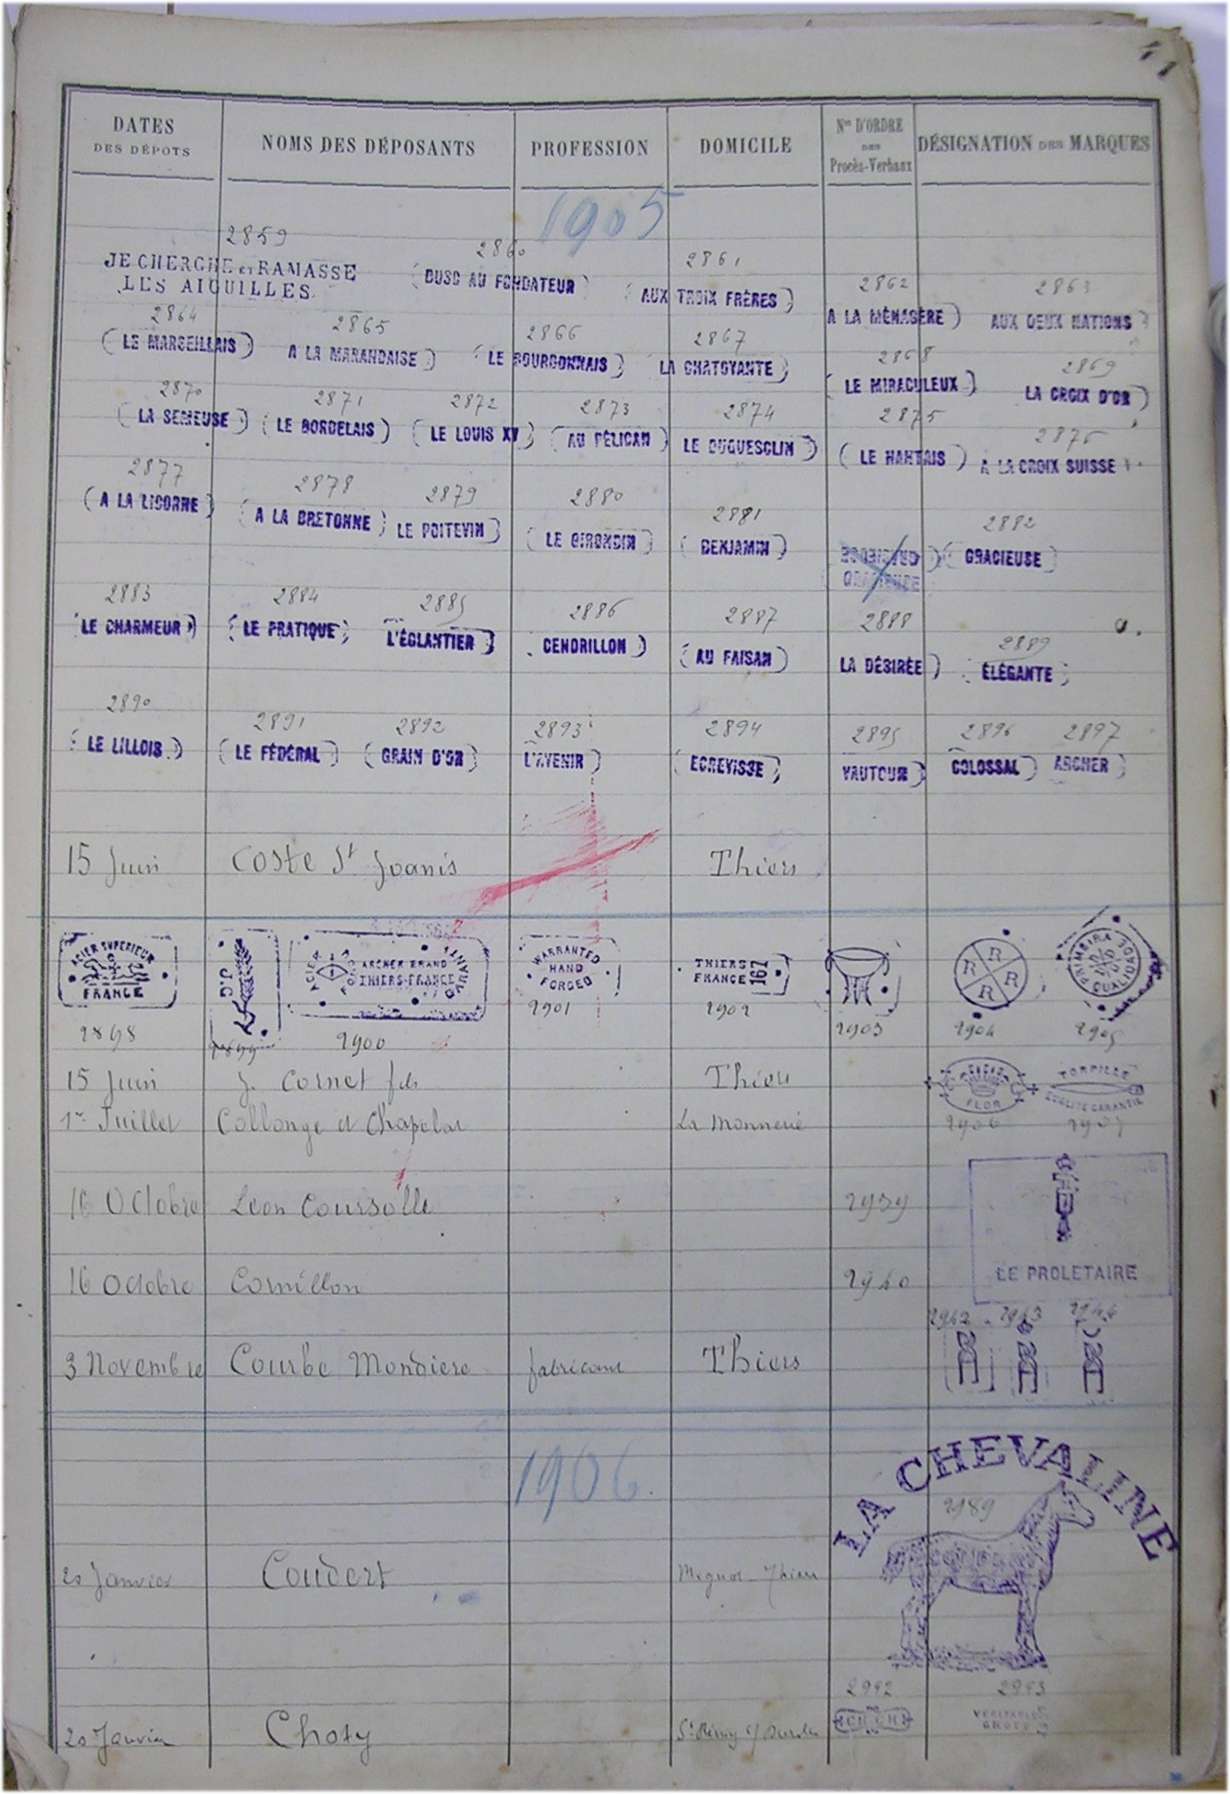 41
DATES DES DÉPOTS
NOMS DES DÉPOSANTS
PROFESSION
DOMICILE
Nos D'ORDRE DES Procès-Verbaux
DÉSIGNATION DES MARQUES
1905
2859 2860 2861 2862 2863
JE CHERCHE ET RAMASSE
LES AIGUILLES
BUSC AU FONDATEUR
AUX TROIX FRÈRES
A LA MÉNAGÈRE
AUX DEUX NATIONS
2864 2865 2866 2867 2868 2869
LE MARSEILLAIS
A LA MARANDAISE
LE BOURBONNAIS
LA CHATOYANTE
LE MIRACULEUX
LA CROIX D'OR
2870 2871 2872 2873 2874 2875 2876
LA SEMEUSE
LE BORDELAIS
LE LOUIS XV
AU PÉLICAN
LE DUGUESCLIN
LE NANTAIS
A LA CROIX SUISSE
2877 2878 2879 2880 2881 2882
A LA LICORNE
A LA BRETONNE
LE POITEVIN
LE GIRONDIN
BENJAMIN
GRACIEUSE
2883 2884 2885 2886 2887 2888 2889
LE CHARMEUR
LE PRATIQUE
L'ÉGLANTIER
CENDRILLON
AU FAISAN
LA DÉSIRÉE
ÉLÉGANTE
2890 2891 2892 2893 2894 2895 2896 2897
LE LILLOIS
LE FÉDÉRAL
GRAIN D'OR
L'AVENIR
ECREVISSE
VAUTOUR
COLOSSAL
ARCHER
15 Juin Coste St Joanis Thiers
ACIER SUPERIEUR
FRANCE
J.C
ACIER
ARCHER BRAND
THIERS-FRANCE
GARANTI
WARRANTED
HAND
FORGED
THIERS
FRANCE
162
R R R R
PRIMEIRA
QUALIDADE
2898 2899 2900 2901 2902 2903 2904 2905
15 Juin J. Cornet fils Thiers
FLOR
TORPILLE
QUALITÉ GARANTIE
1er Juillet Collonge et Chapelat La Monnerie 2906 2907
16 Octobre Léon Coursolle 2939
LE PROLETAIRE
16 Octobre Cornillon 2940
2942 2943 2944
3 Novembre Courbe Mondière fabricant Thiers
1906
LA CHEVALINE
2989
20 Janvier Coudert Thiers
2992 2993
20 Janvier Choty St Rémy s/ Durolle